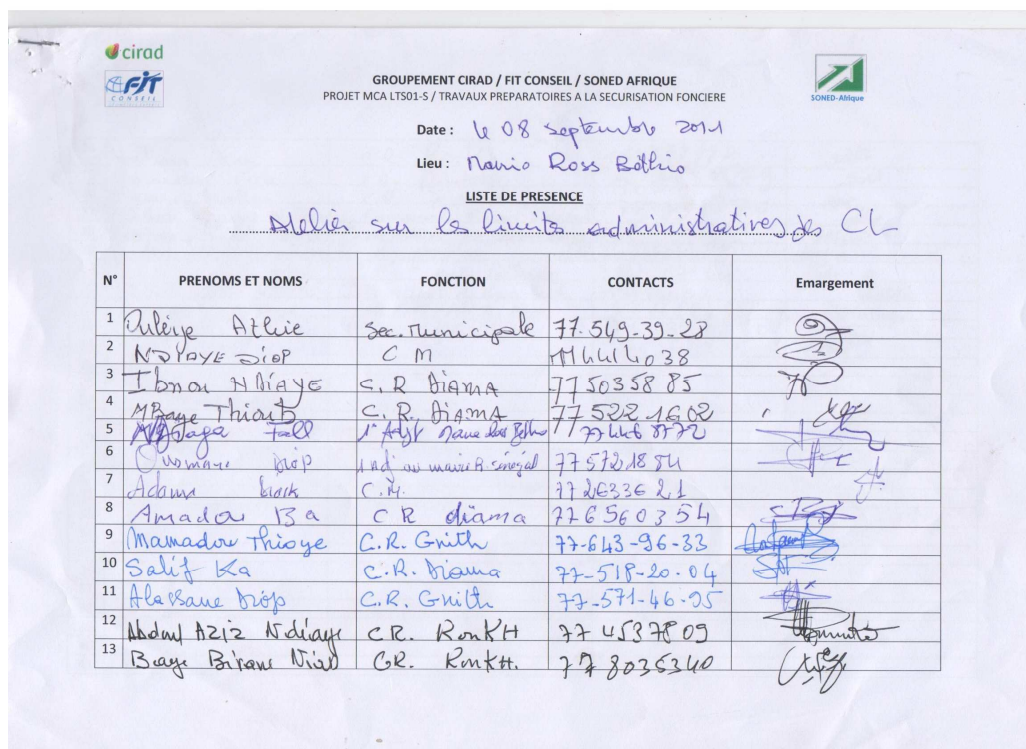 cirad
FIT
CONSEIL
SONED-Afrique
GROUPEMENT CIRAD / FIT CONSEIL / SONED AFRIQUE
PROJET MCA LTS01-S / TRAVAUX PREPARATOIRES A LA SECURISATION FONCIERE
Date : le 08 septembre 2011
Lieu : Mairie Ross Béthio
LISTE DE PRESENCE
Atelier sur les limites administratives des CL
N° PRENOMS ET NOMS FONCTION CONTACTS Emargement
1 Athie Sec. Municipale 77.549-39-28
2 NDIAYE DIOP C M
3 Ibnou NDIAYE C. R DIAMA 77 50358 85
4 MBaye Thioub C. R. DIAMA 77 522 16 02
5 Fall
6 Ousmane Diop 77 572 18 84
7 Adama C.M. 77 26336 21
8 Amadou Ba C R diama 77 6560354
9 Mamadou Thioye C.R. Gnith 77-643-96-33
10 Salif Ka C.R. Diama 77-518-20-04
11 Alassane Diop C.R. Gnith 77-571-46-95
12 Abdoul Aziz Ndiaye CR. RonkH 77 4537809
13 Baye Birane CR. RonkH. 77 8036340